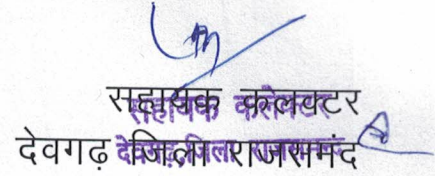 सहायक कलक्टर
देवगढ़ जिला राजसमंद